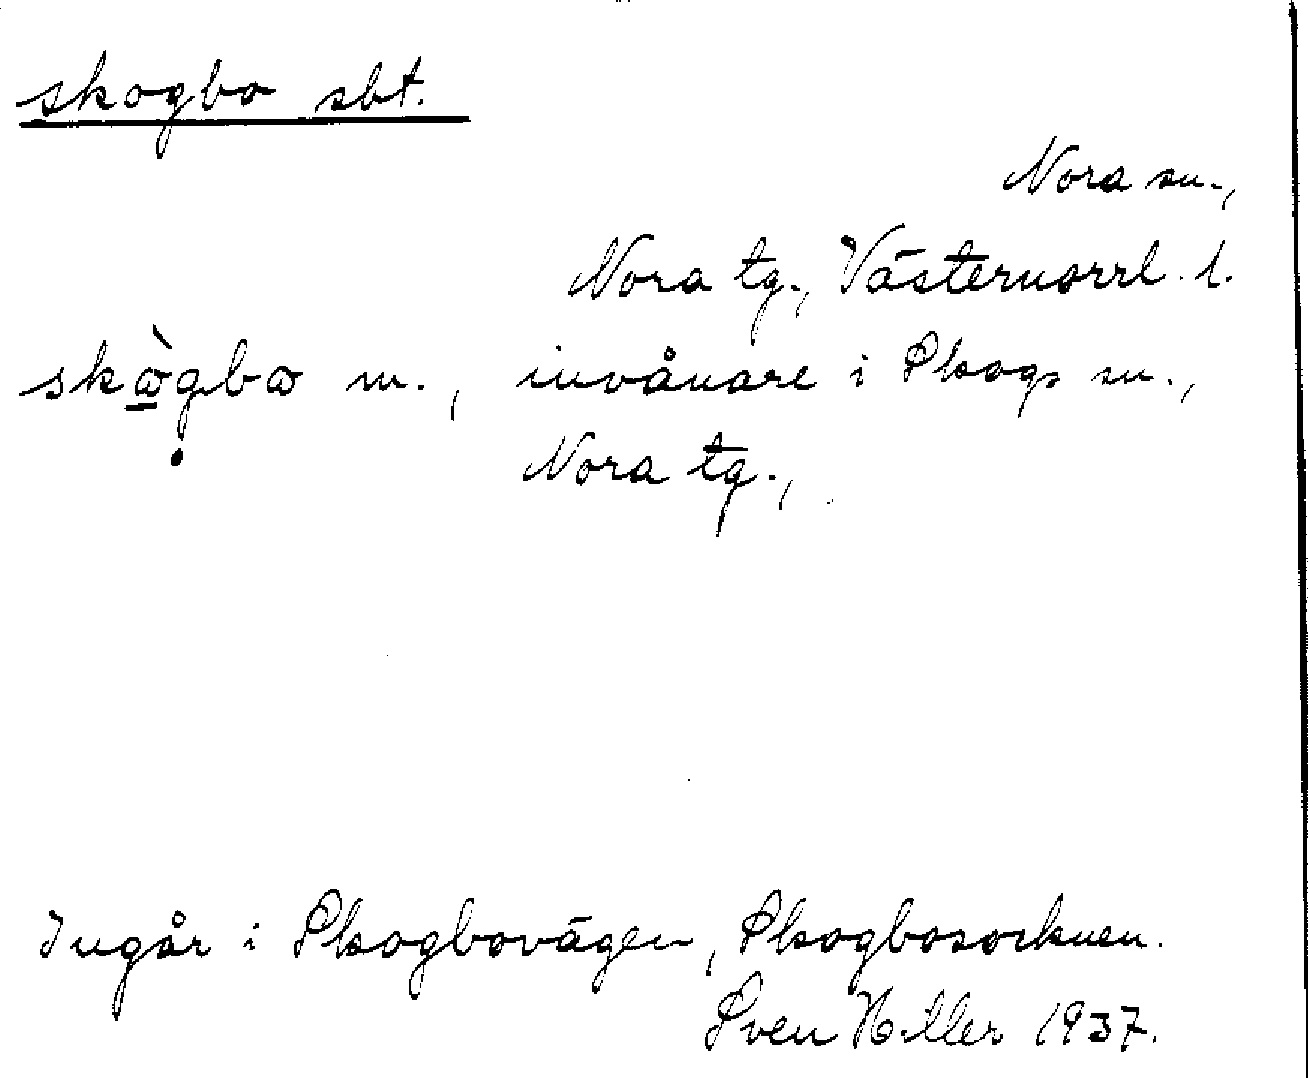 skogbo sbt.
Nora sn.,
Nora tg., Västernorrl. l.
skògbo m., invånare i Skogs sn.,
Nora tg.,
Ingår i Skogbovägen, Skogbosocknen.
Sven Hiller 1937.